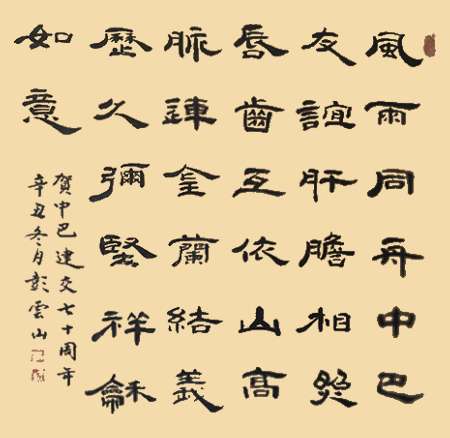 風雨同舟中巴
友誼肝膽相照
唇齒互依山高
脈連金蘭結義
歷久彌堅祥龢
如意
賀中巴建交七十周年
辛丑冬月彭雲山